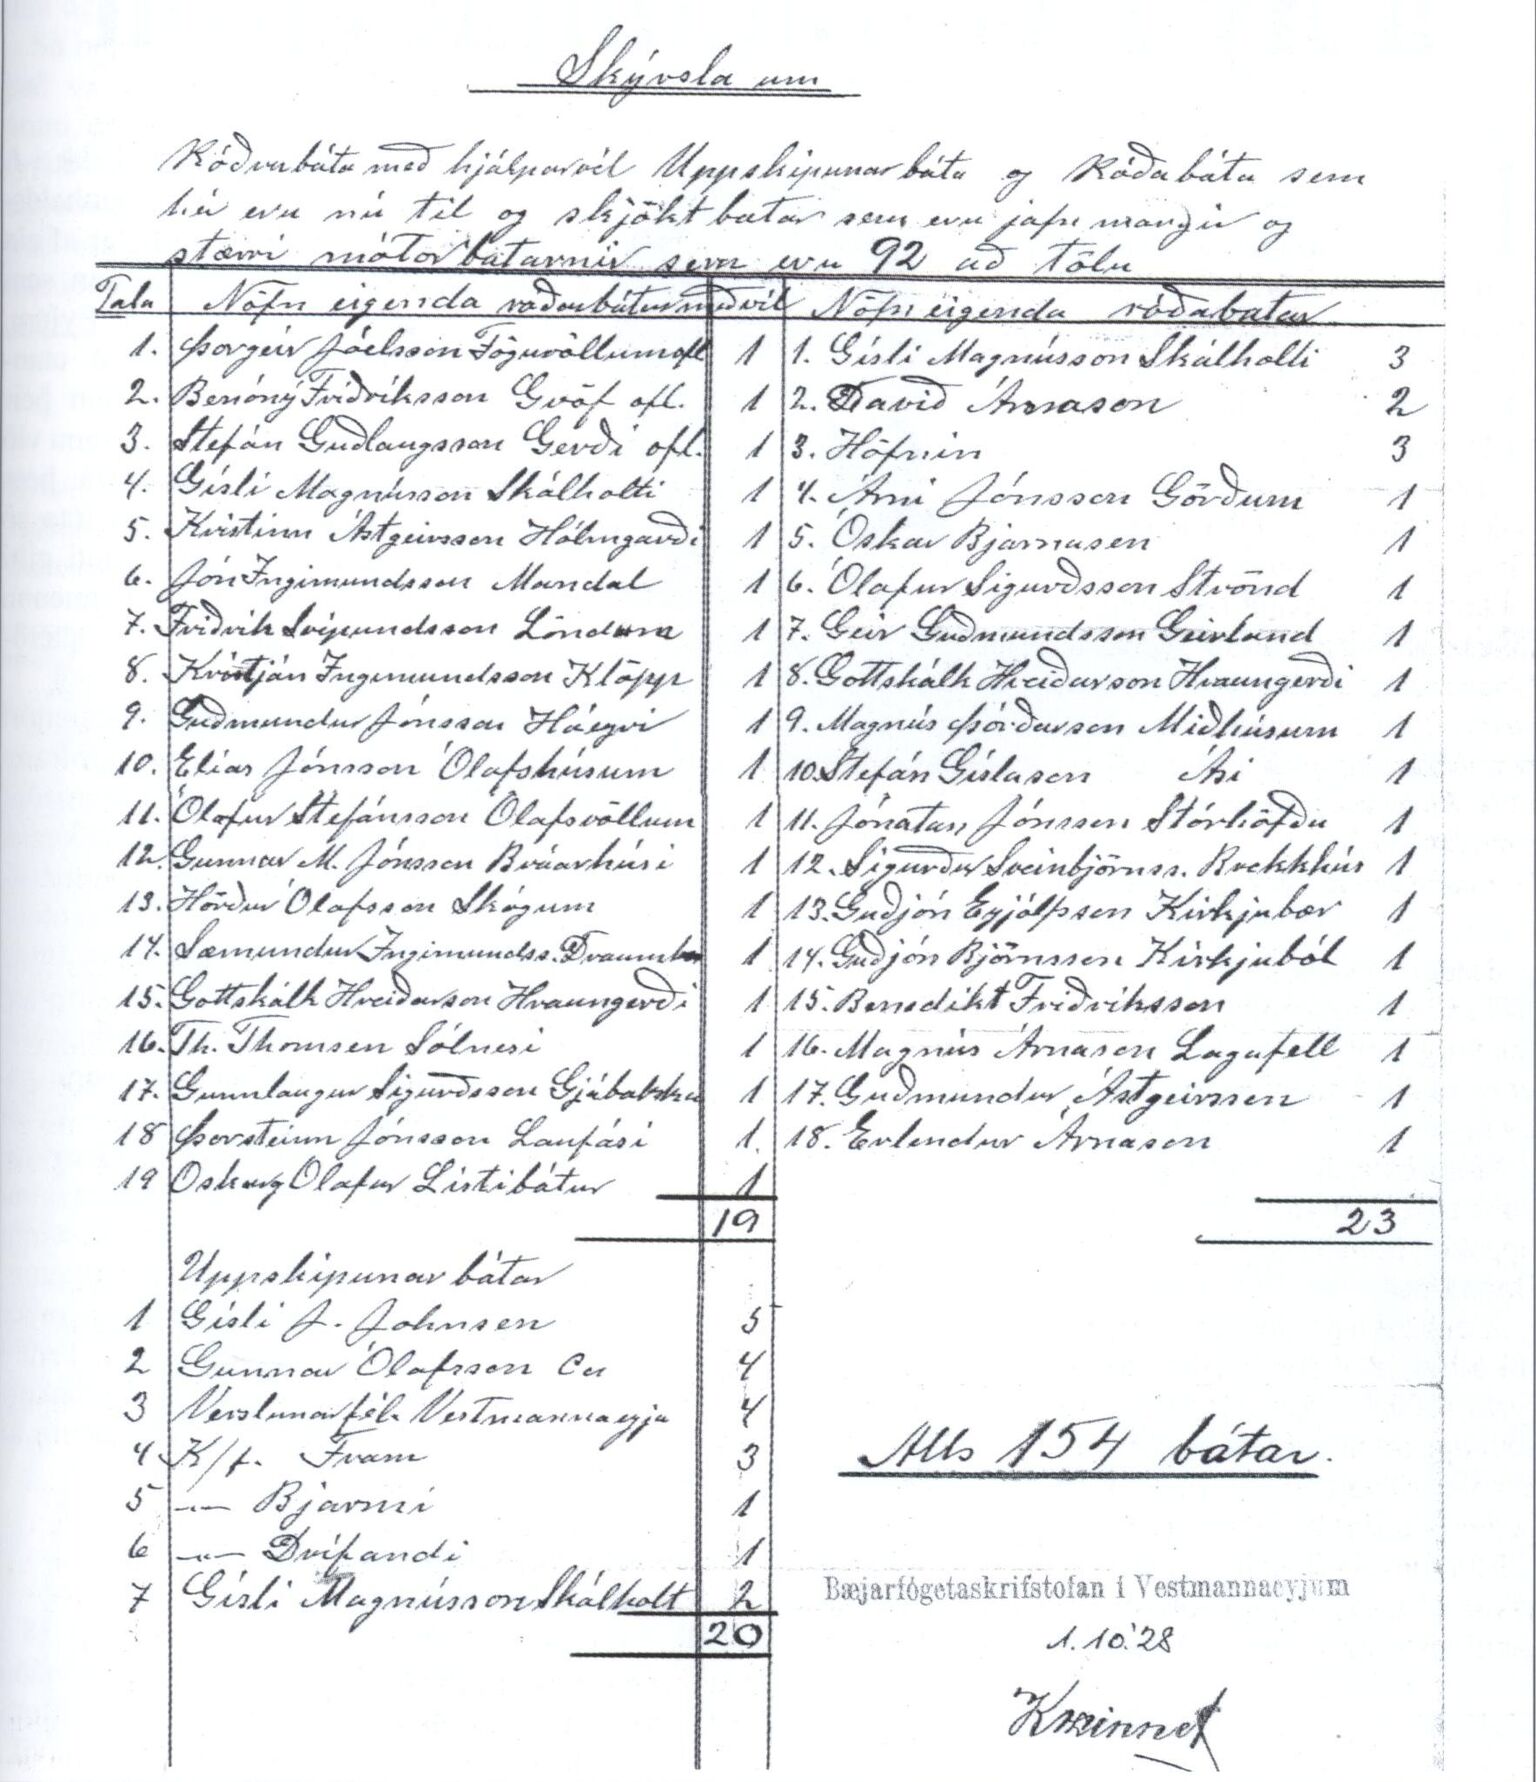 Skýrsla um
Róðrarbáta með hjálparvél Uppskipunarbáta og Róðabáta sem
hér eru nú til og skjöktbatar sem eru jafn margir og
stærri mótorbatarnir sem eru 92 að tölu
Tala Nöfn eigenda roðarbátur með vél Nöfn eigenda róðabatar
1. Þorgeir Jóelsson Fögurvöllum ofl 1 1. Gísli Magnússon Skálholti 3
2. Benóný Friðriksson Gröf ofl. 1 2. Davið Árnason 2
3. Stefán Guðlaugsson Gerði ofl. 1 3. Höfnin 3
4. Gísli Magnússon Skálholti 1 4. Árni Jónsson Görðum 1
5. Kristinn Ástgeirsson Hólmgarði 1 5. Óskar Bjarnasen 1
6. Jón Ingimundsson Mandal 1 6. Ólafur Sigurðsson Strönd 1
7. Friðrik Svipundsson Löndum 1 7. Geir Guðmundsson Geirland 1
8. Kristján Ingimundsson Klöpp 1 8. Gottskálk Hreiðarson Hraungerði 1
9. Guðmundur Jónsson Háeyri 1 9. Magnús Þórðarson Miðhúsum 1
10. Elías Jónsson Ólafshúsum 1 10. Stefán Gíslason Ási 1
11. Ólafur Stefánsson Ólafsvöllum 1 11. Jónatan Jónsson Stórhöfða 1
12. Gunnar M. Jónsson Brúarhúsi 1 12. Sigurður Sveinbjörnss. Brekkhús 1
13. Hörður Ólafsson Skógum 1 13. Guðjón Eyjólfsson Kirkjubær 1
14. Sæmundur Ingimundss. 1 14. Guðjón Björnssen Kirkjuból 1
15. Gottskálk Hreiðarson Hraungerði 1 15. Benedikt Friðriksson 1
16. Th. Thomsen Sólnesi 1 16. Magnús Árnason Lagafell 1
17. Gunnlaugur Sigurðsson Gjábakka 1 17. Guðmundur Ástgeirssen 1
18 Þorsteinn Jónsson Laufási 1. 18. Erlendur Árnason 1
19 Oskar og Olafur Listibátur 1
19 23
Uppskipunar bátar
1 Gísli J. Johnsen 5
2 Gunnar Ólafsson Co 4
3 Verslunarfél. Vestmannaeyja 4
4 K/f. Fram 3
Alls 154 bátar.
5 —"— Bjarmi 1
6 —"— Drífandi 1
7 Gísli Magnússon Skálholt 2
Bæjarfógetaskrifstofan í Vestmannaeyjum
20
1.10.'28